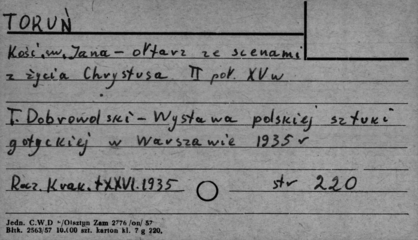 TORUŃ
Kość. w. Jana - ołtarz ze scenami
z życia Chrystusa II poł. XV w
T. Dobrowolski - Wystawa polskiej sztuki
gotyckiej w Warszawie 1935 r
Rocz. Krak. t XXVI. 1935 str 220
Jedn. C.W.D Olsztyn Zam 2776 /on/ 57
Bstk. 2563/57 10.000 szt. karton kl. 7 g 220.